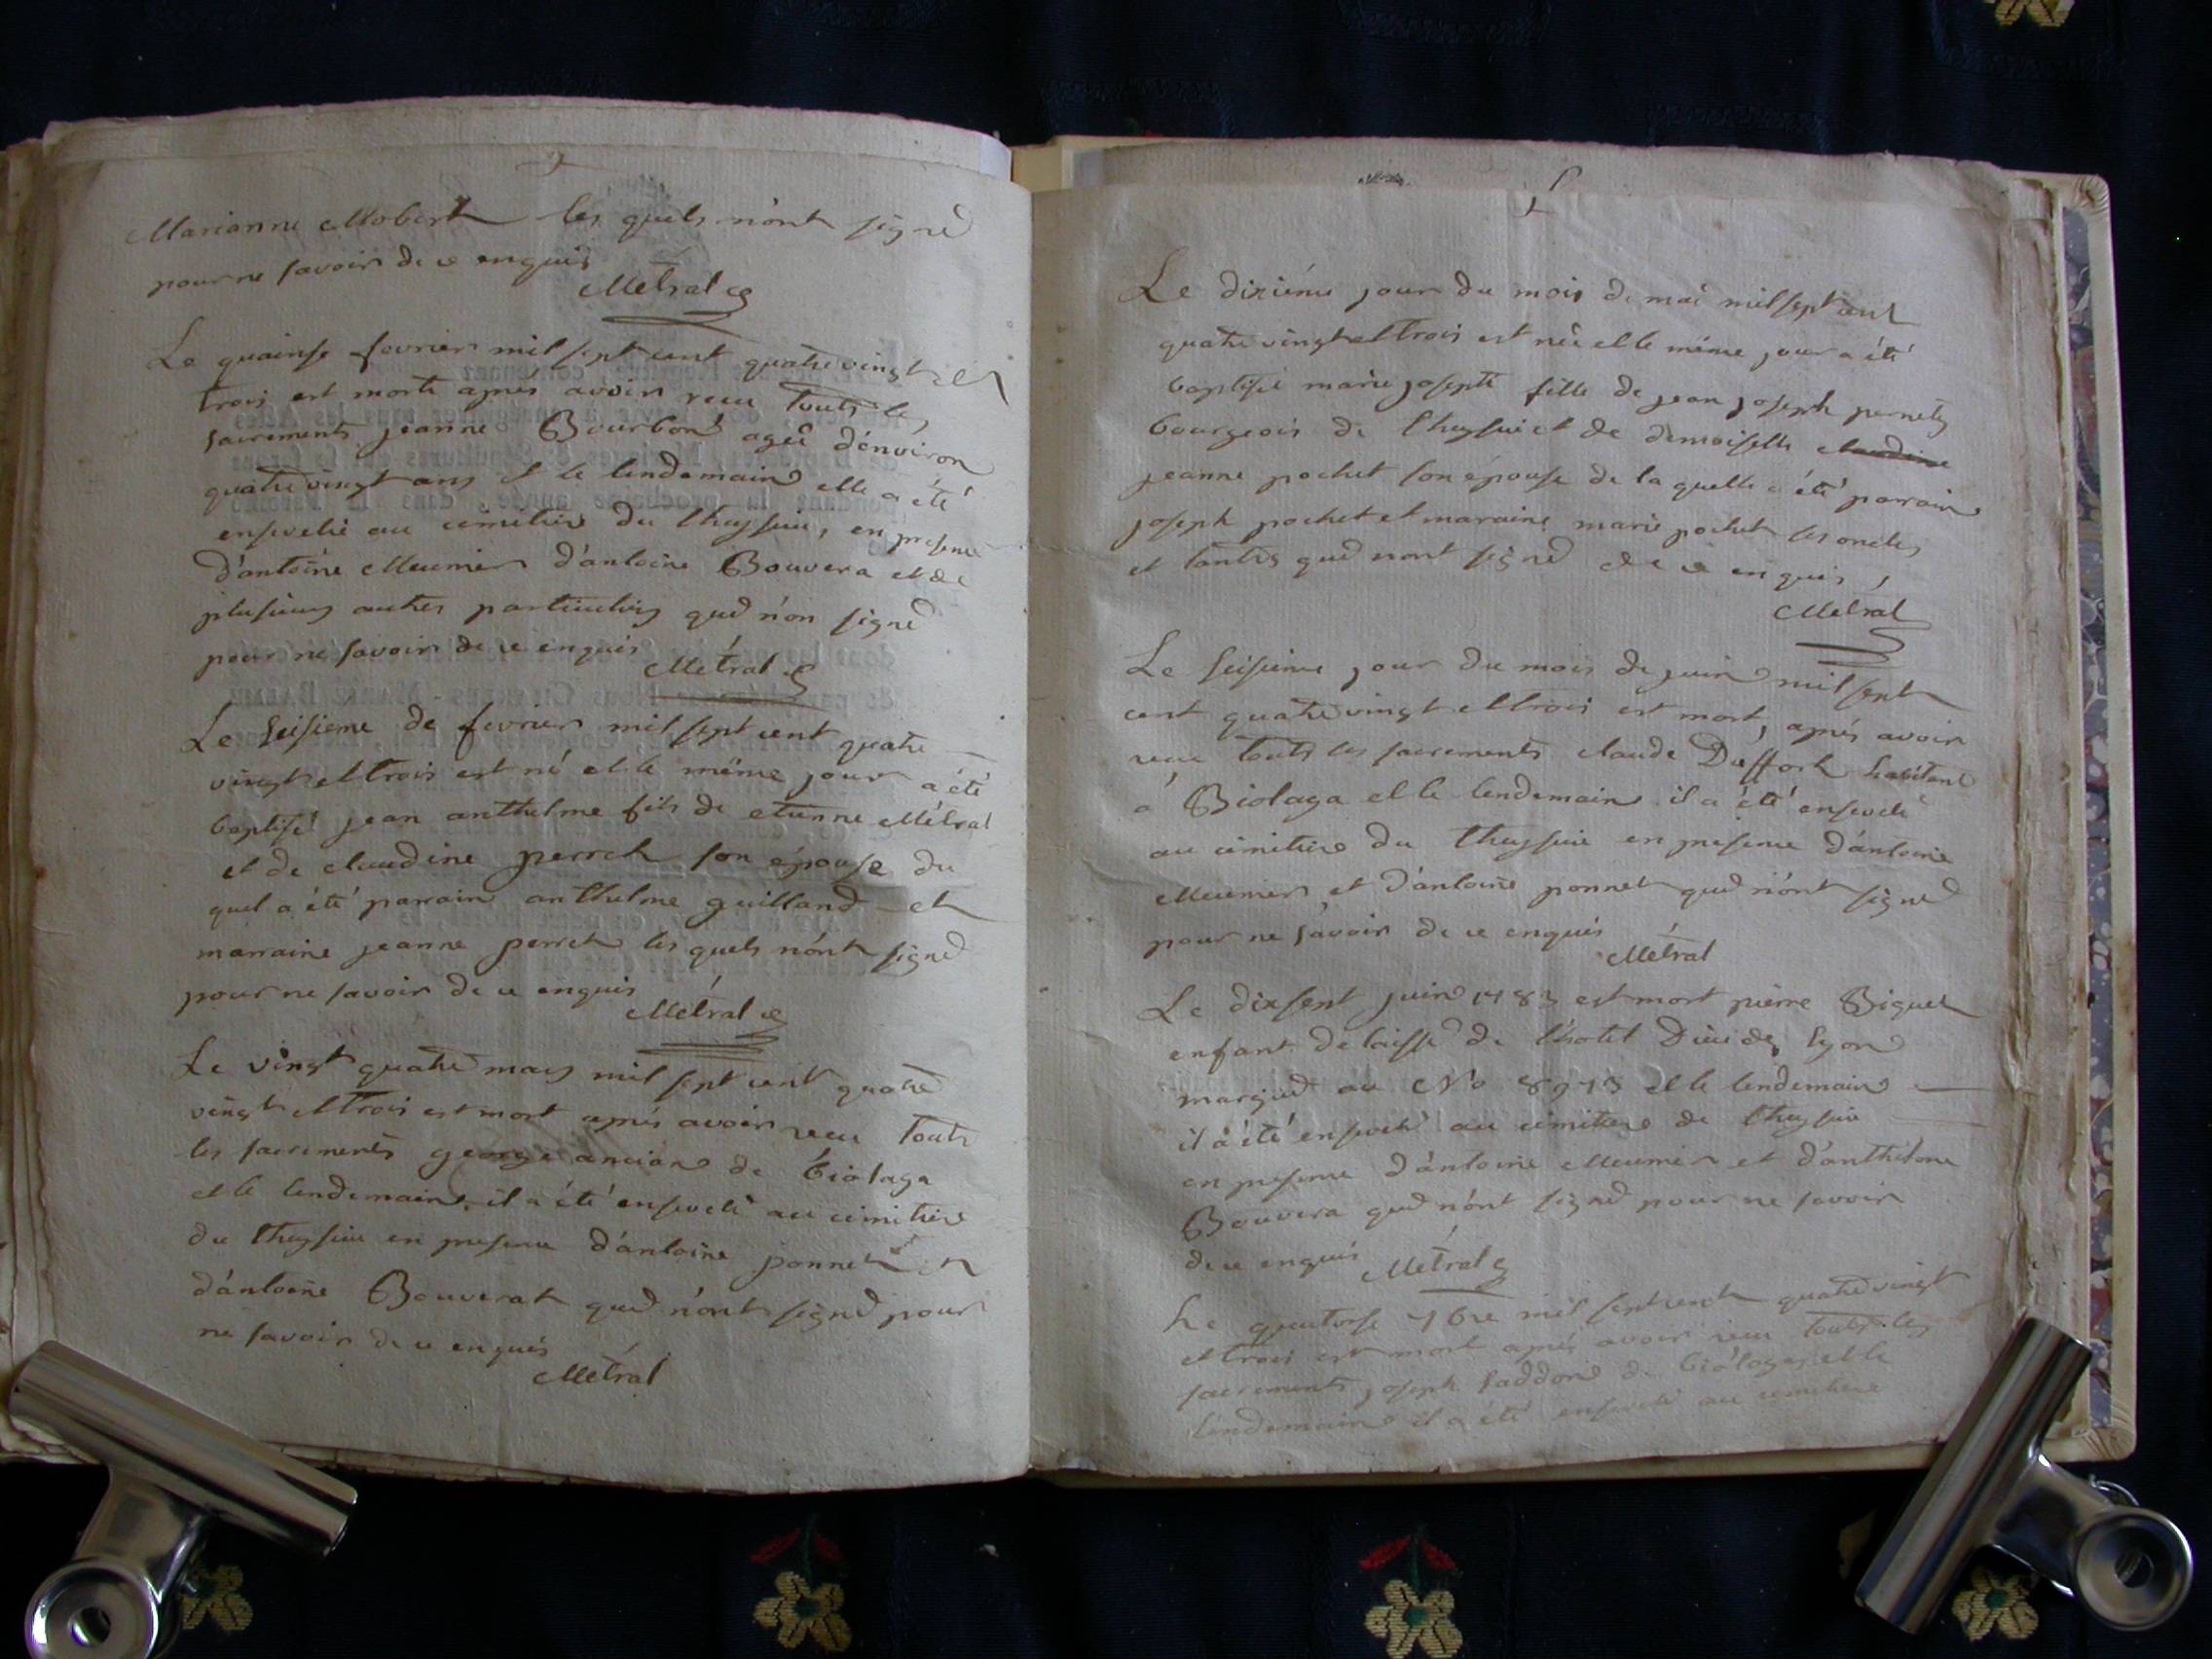 Marianne Mobert les quels n'ont signé
pour ne savoir de ce enquis
Métral
Le quainse fevrier mil sept cent quatre vingt et
trois est morte aprés avoir recu touts les
sacrements jeanne Bourbon ageé d'environ
quatre vingt ans et le lendemain elle a été
ensevelie au cimetiere du thuyssiu, en presence
d'antoine Meunier d'antoine Bouvera et de
plusieurs autres particuliers qui n'on signé
pour ne savoir de ce enquis
Métral
Le seisieme de fevrier mil sept cent quatre
vingt et trois est né et le même jour a été
baptisé jean anthelme fils de etienne Métral
et de claudine perret son épouse du
quel a été parrain anthelme guilland et
marraine jeanne perret les quels n'ont signé
pour ne savoir de ce enquis
Métral
Le vingt quatre mars mil sept cent quatre
vingt et trois est mort aprés avoir recu touts
les sacrements george ancian de biolaga
et le lendemain il a été enseveli au cimitiere
du thuyssiu en presence d'antoine ponnet et
d'antoine Bouverat qui n'ont signé pour
ne savoir de ce enquis
Métral
Le dixiéme jour du mois de mai mil sept cent
quatre vingt et trois est née et le même jour a été
baptisée marie josepte fille de jean joseph pernety
bourgeois de thuyssiu et de demoiselle claudine
jeanne pochet son épouse de la quelle a été parrain
joseph pochet et maraine marie pochet ses oncles
et tantes qui n'ont signé de ce enquis,
Métral
Le seisieme jour du mois de juin mil sept
cent quatre vingt et trois est mort, aprés avoir
recu touts les sacrements claude Duffort habitant
a Biolaga et le lendemain il a été enseveli
au cimitiere du thuyssiu en presence d'antoine
Meunier et d'antoine ponnet qui n'ont signé
pour ne savoir de ce enquis
Métral
Le dixsept juin 1783 est mort pierre Biguet
enfant delaissé de l'hotel Dieu de lyon
marqué au No 8973 et le lendemain
il a été enseveli au cimitiere de thuyssiu
en presence d'antoine Meunier et d'anthelme
Bouvera qui n'ont signé pour ne savoir
de ce enquis Métral
Le quatorse 7bre mil sept cent quatre vingt
et trois est mort aprés avoir recu touts les
sacrements joseph saddon de biolaga et le
lendemain il a été enseveli au cimetiere